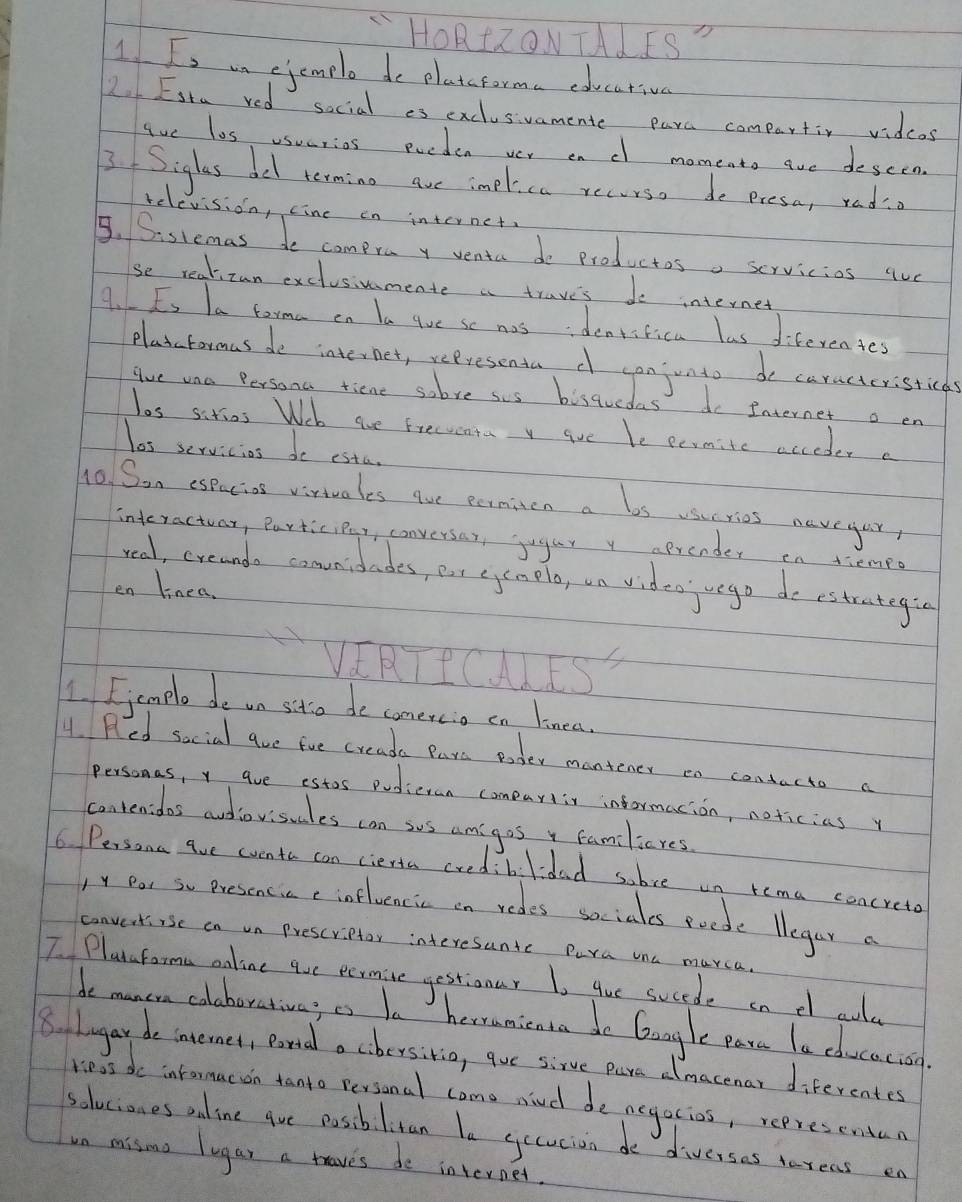 "HORIZONTALES"
1.- Es un ejemplo de plataforma educativa
2.- Esta red social es exclusivamente para compartir videos
que los usuarios pueden ver en el momento que deseen.
3.- Siglas del termino que implica recurso de presa, radio
televisión, cine en internet.
5.- Sistemas de compra y venta de productos o servicios que
se realizan exclusivamente a través de internet
9.- Es la forma en la que se nos identifica las diferentes
plataformas de internet, representa el conjunto de caracteristicas
que una persona tiene sobre sus búsquedas de Internet o en
los sitios Web que frecuenta y que le permite acceder a
los servicios de esta.
10. Son espacios virtuales que permiten a los usuarios navegar,
interactuar, participar, conversar, jugar y aprender en tiempo
real, creando comunidades, por ejemplo, un videojuego de estrategia
en linea.
"VERTICALES"
1.- Ejemplo de un sitio de comercio en linea.
4.- Red social que fue creada para poder mantener en contacto a
personas, y que estos pudieran compartir información, noticias y
contenidos audiovisuales con sus amigos y familiares.
6.- Persona que cuenta con cierta credibilidad sobre un tema concreto
, y por su presencia e influencia en redes sociales puede llegar a
convertirse en un prescriptor interesante para una marca.
7.- Plataforma online que permite gestionar lo que sucede en el aula
de manera colaborativa; es la herramienta de Google para la educación.
8.- Lugar de internet, portal o cibersitio, que sirve para almacenar diferentes
tipos de información tanto personal como nivel de negocios, representan
soluciones online que posibilitan la ejecución de diversas tareas en
un mismo lugar a través de internet.